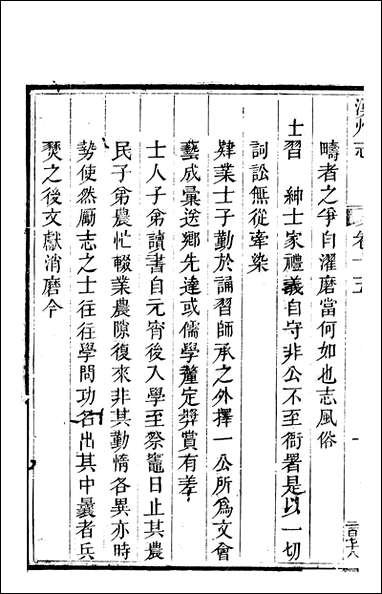 漢州志 卷十五
疇者之爭自濯磨當何如也志風俗
士習 紳士家禮義自守非公不至衙署是以一切
詞訟無從牽染
肄業士子勤於誦習師承之外擇一公所爲文會
藝成彙送鄉先達或儒學釐定奬賞有差
士人子弟讀書自元宵後入學至祭竈日止其農
民子弟農忙輟業農隙復來非其勤惰各異亦時
勢使然勵志之士往往學問功名出其中曩者兵
燹之後文獻消磨今